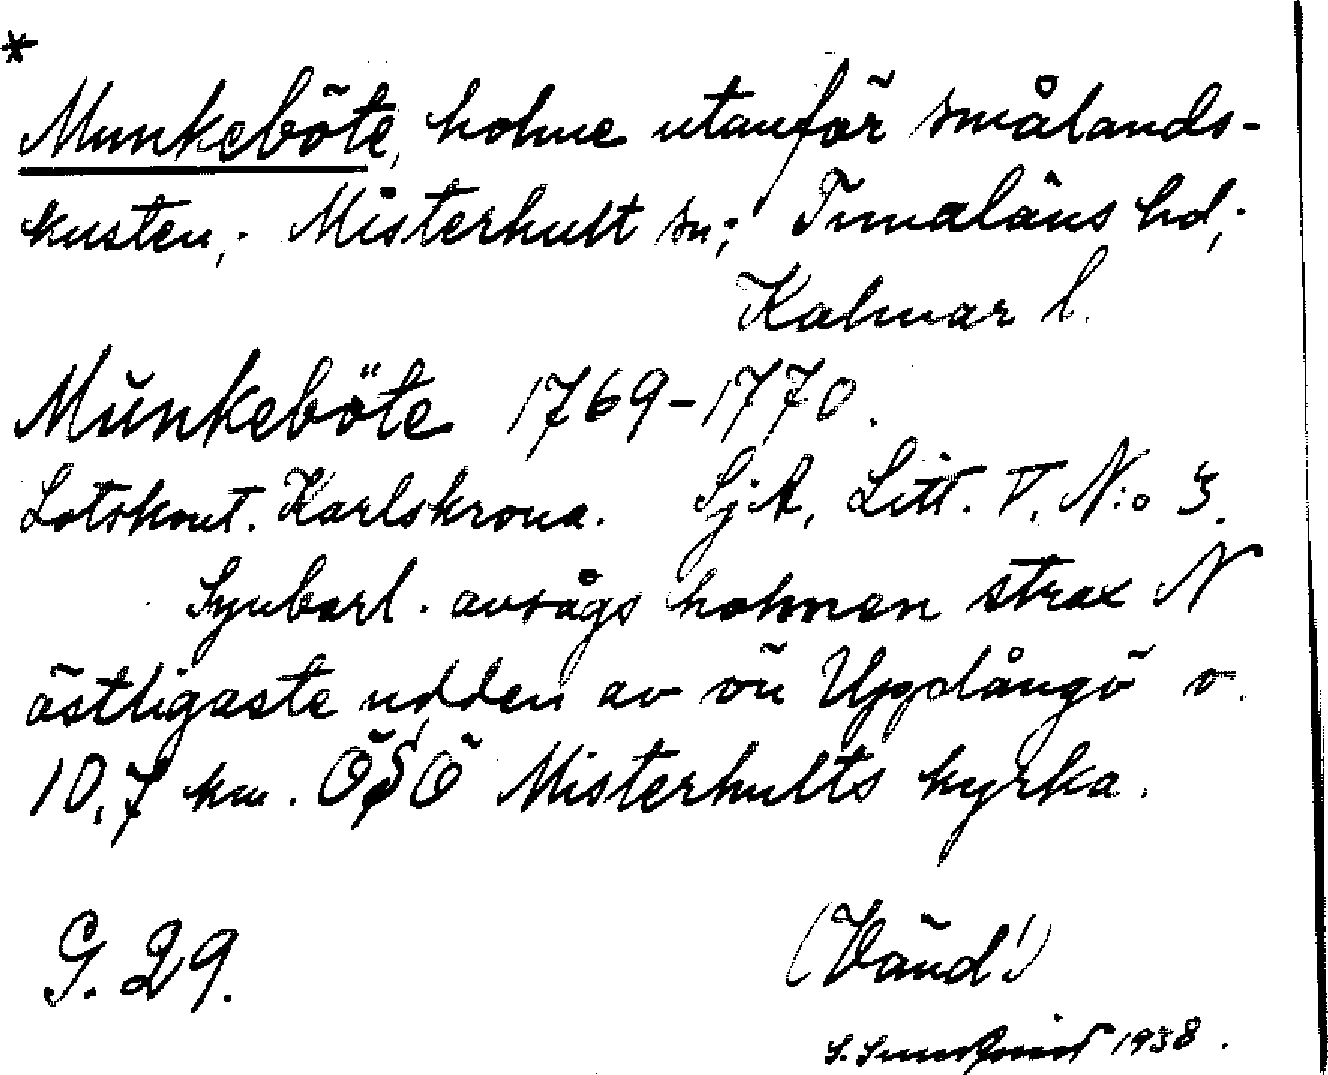 *
Munkeböte, holme utanför smålands-
kusten; Misterhult sn; Tunaläns hd;
Kalmar l.
Munkeböte 1769-1770.
Lotskont. Karlskrona. SjA, Litt. T. N:o 3.
Synbarl. avsågs holmen strax N
östligaste udden av ön Upplångö o.
10,7 km. ÖSÖ Misterhults kyrka.
G. 29.
(Vänd!)
1938.